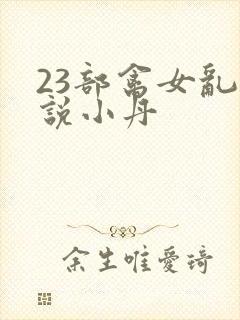 23部禽女亂
說小丹
余生唯愛琦